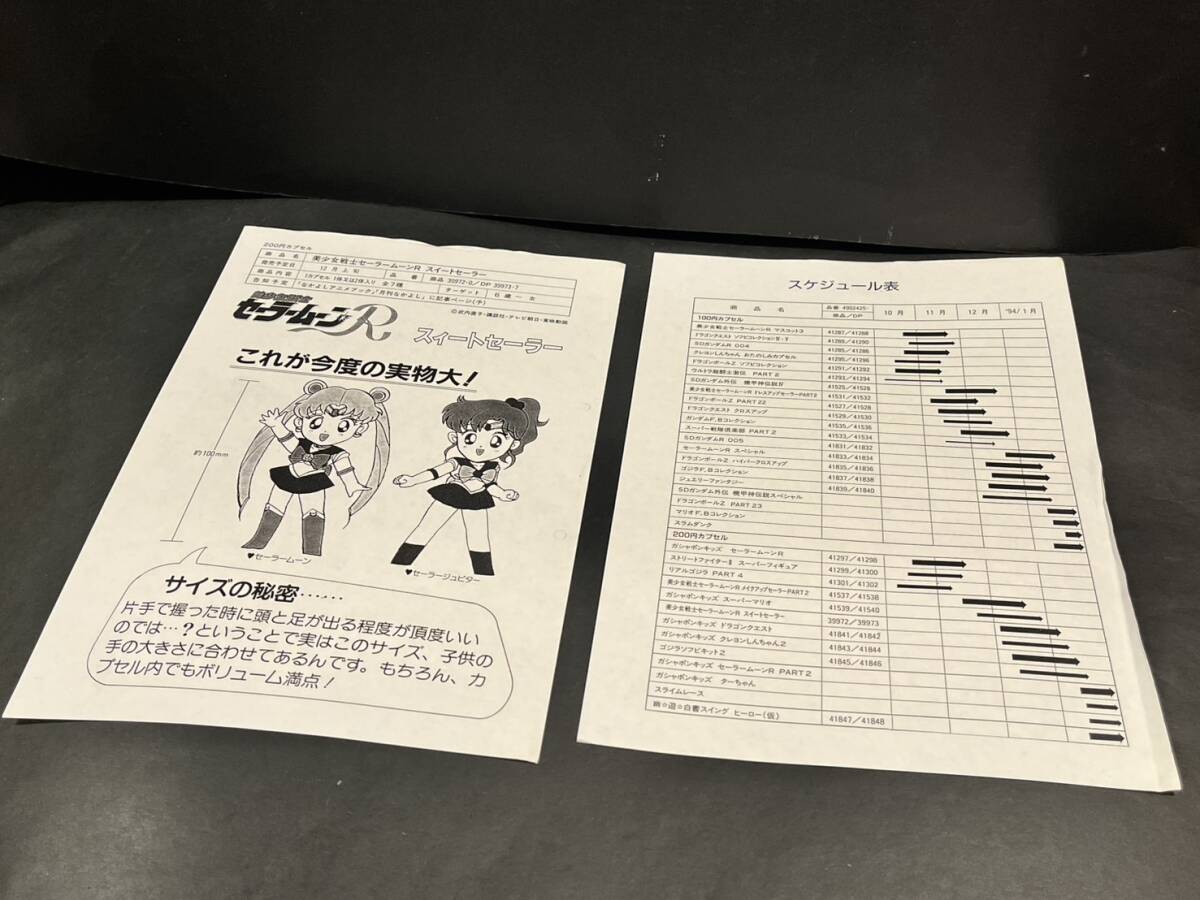 200円カプセル
商品名 美少女戦士セーラームーンR スイートセーラー
発売予定日 12月上旬 品番 商品 39972-0/DP 39973-7
商品内容 1カプセル 1体又は2体入り 全7種
告知予定 「なかよしアニメブック」「月刊なかよし」に記事ページ(予) ターゲット 6歳〜 女
©武内直子・講談社・テレビ朝日・東映動画
美少女戦士
セーラームーンR
スイートセーラー
これが今度の実物大!
約100mm
♥セーラームーン
♥セーラージュピター
サイズの秘密……
片手で握った時に頭と足が出る程度が頂度いい
のでは…?ということで実はこのサイズ、子供の
手の大きさに合わせてあるんです。もちろん、カ
プセル内でもボリューム満点!
スケジュール表
商品名 品番 4902425- 商品/DP 10月 11月 12月 '94/1月
100円カプセル
美少女戦士セーラームーンR マスコット3 41287/41288
ドラゴンクエスト ソフビコレクションⅣ・Ⅴ 41289/41290
SDガンダムR 004 41285/41286
クレヨンしんちゃん おたのしみカプセル 41295/41296
ドラゴンボールZ ソフビコレクション 41291/41292
ウルトラ超闘士激伝 PART2 41293/41294
SDガンダム外伝 機甲神伝説Ⅳ 41525/41526
美少女戦士セーラームーンR ドレスアップセーラーPART2 41531/41532
ドラゴンボールZ PART22 41527/41528
ドラゴンクエスト クロスアップ 41529/41530
ガンダムF.Bコレクション 41535/41536
スーパー戦隊倶楽部 PART2 41533/41534
SDガンダムR 005 41831/41832
セーラームーンR スペシャル 41833/41834
ドラゴンボールZ ハイパークロスアップ 41835/41836
ゴジラF.Bコレクション 41837/41838
ジュエリーファンタジー 41839/41840
SDガンダム外伝 機甲神伝説スペシャル
ドラゴンボールZ PART23
マリオF.Bコレクション
スラムダンク
200円カプセル
ガシャポンキッズ セーラームーンR 41297/41298
ストリートファイターⅡ スーパーフィギュア 41299/41300
リアルゴジラ PART4 41301/41302
美少女戦士セーラームーンR メイクアップセーラーPART2 41537/41538
ガシャポンキッズ スーパーマリオ 41539/41540
美少女戦士セーラームーンR スイートセーラー 39972/39973
ガシャポンキッズ ドラゴンクエスト 41841/41842
ガシャポンキッズ クレヨンしんちゃん2 41843/41844
ゴジラソフビキット2 41845/41846
ガシャポンキッズ セーラームーンR PART2
ガシャポンキッズ ターちゃん
スライムレース
幽☆遊☆白書スイング ヒーロー(仮) 41847/41848